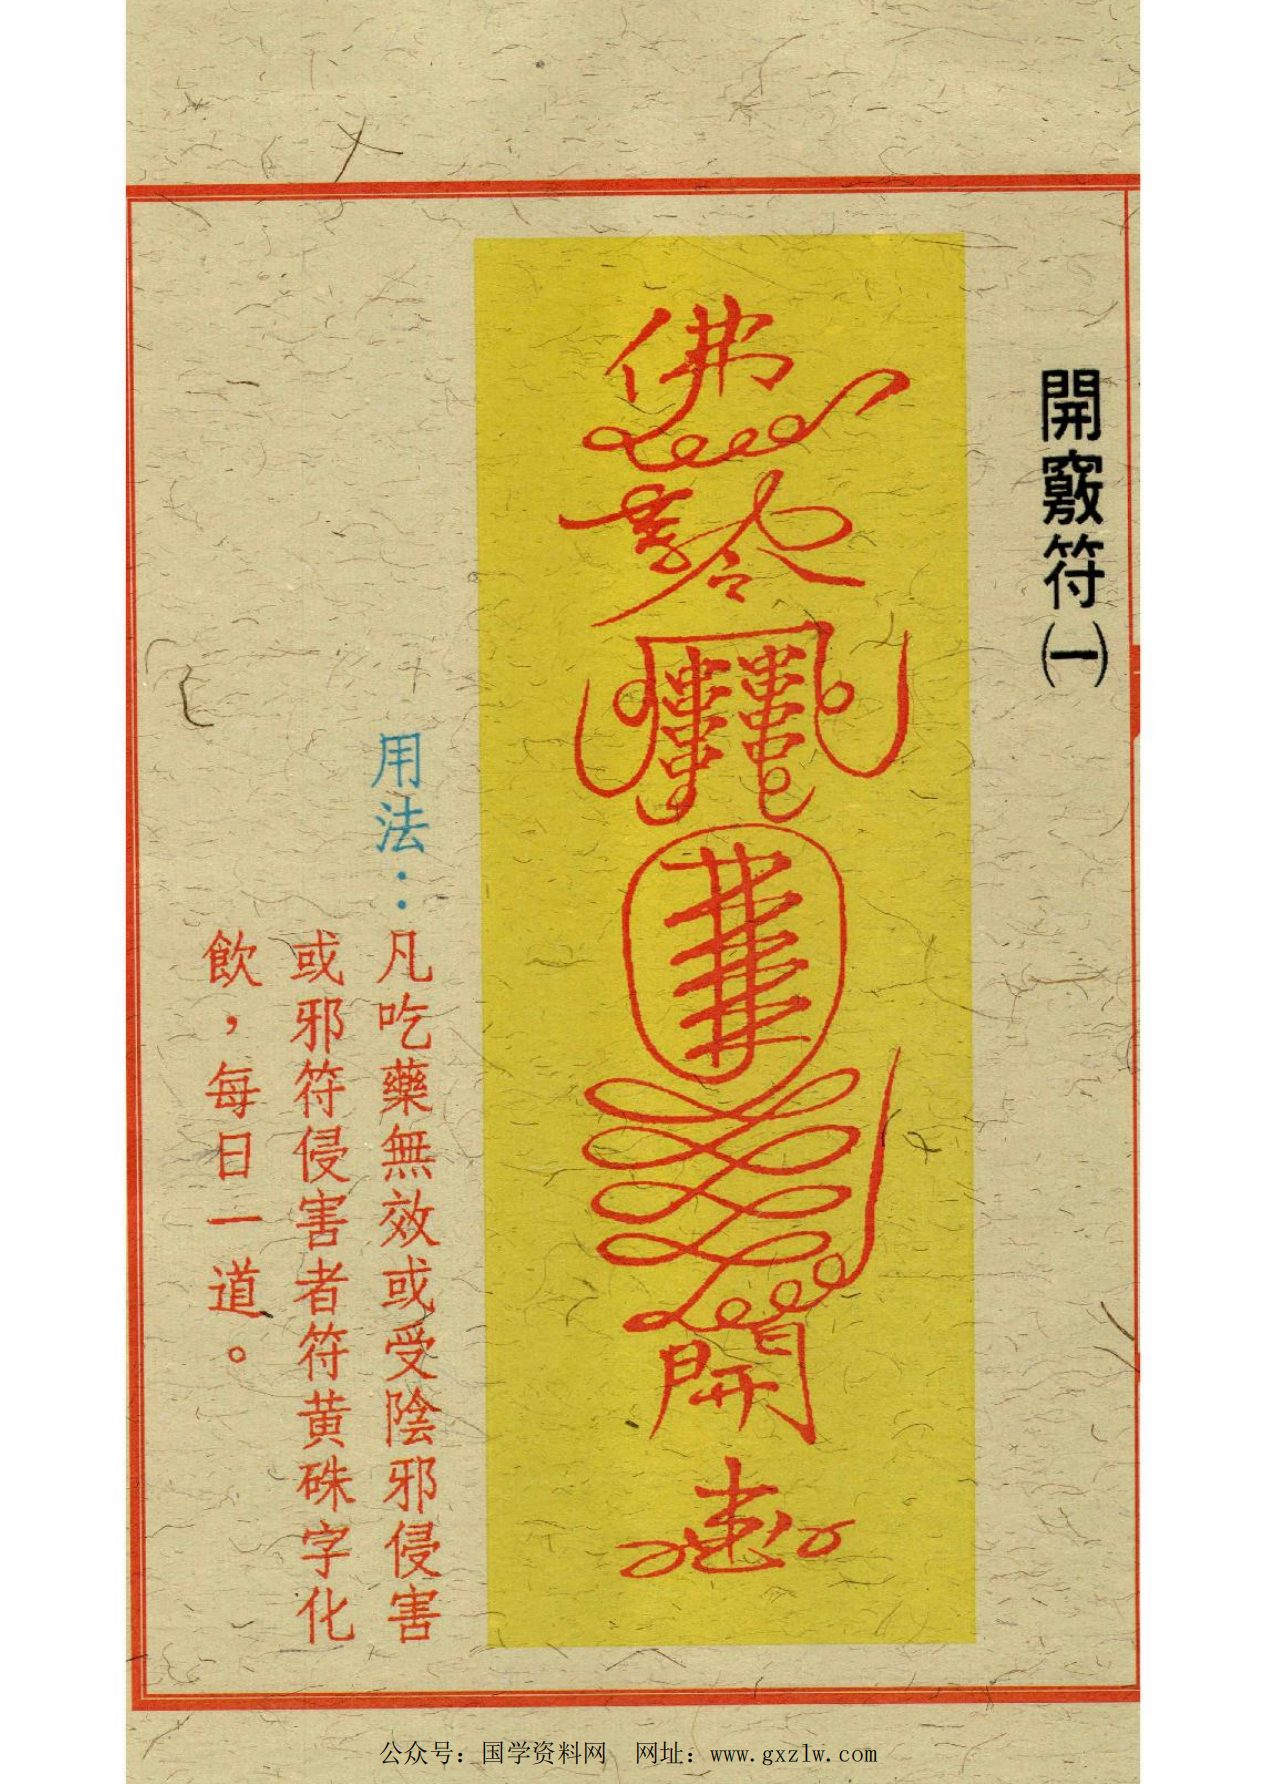 開竅符(一)
佛
令
開
用法：凡吃藥無效或受陰邪侵害
或邪符侵害者符黄硃字化
飲，每日一道。
公众号：国学资料网　网址：www.gxzlw.com